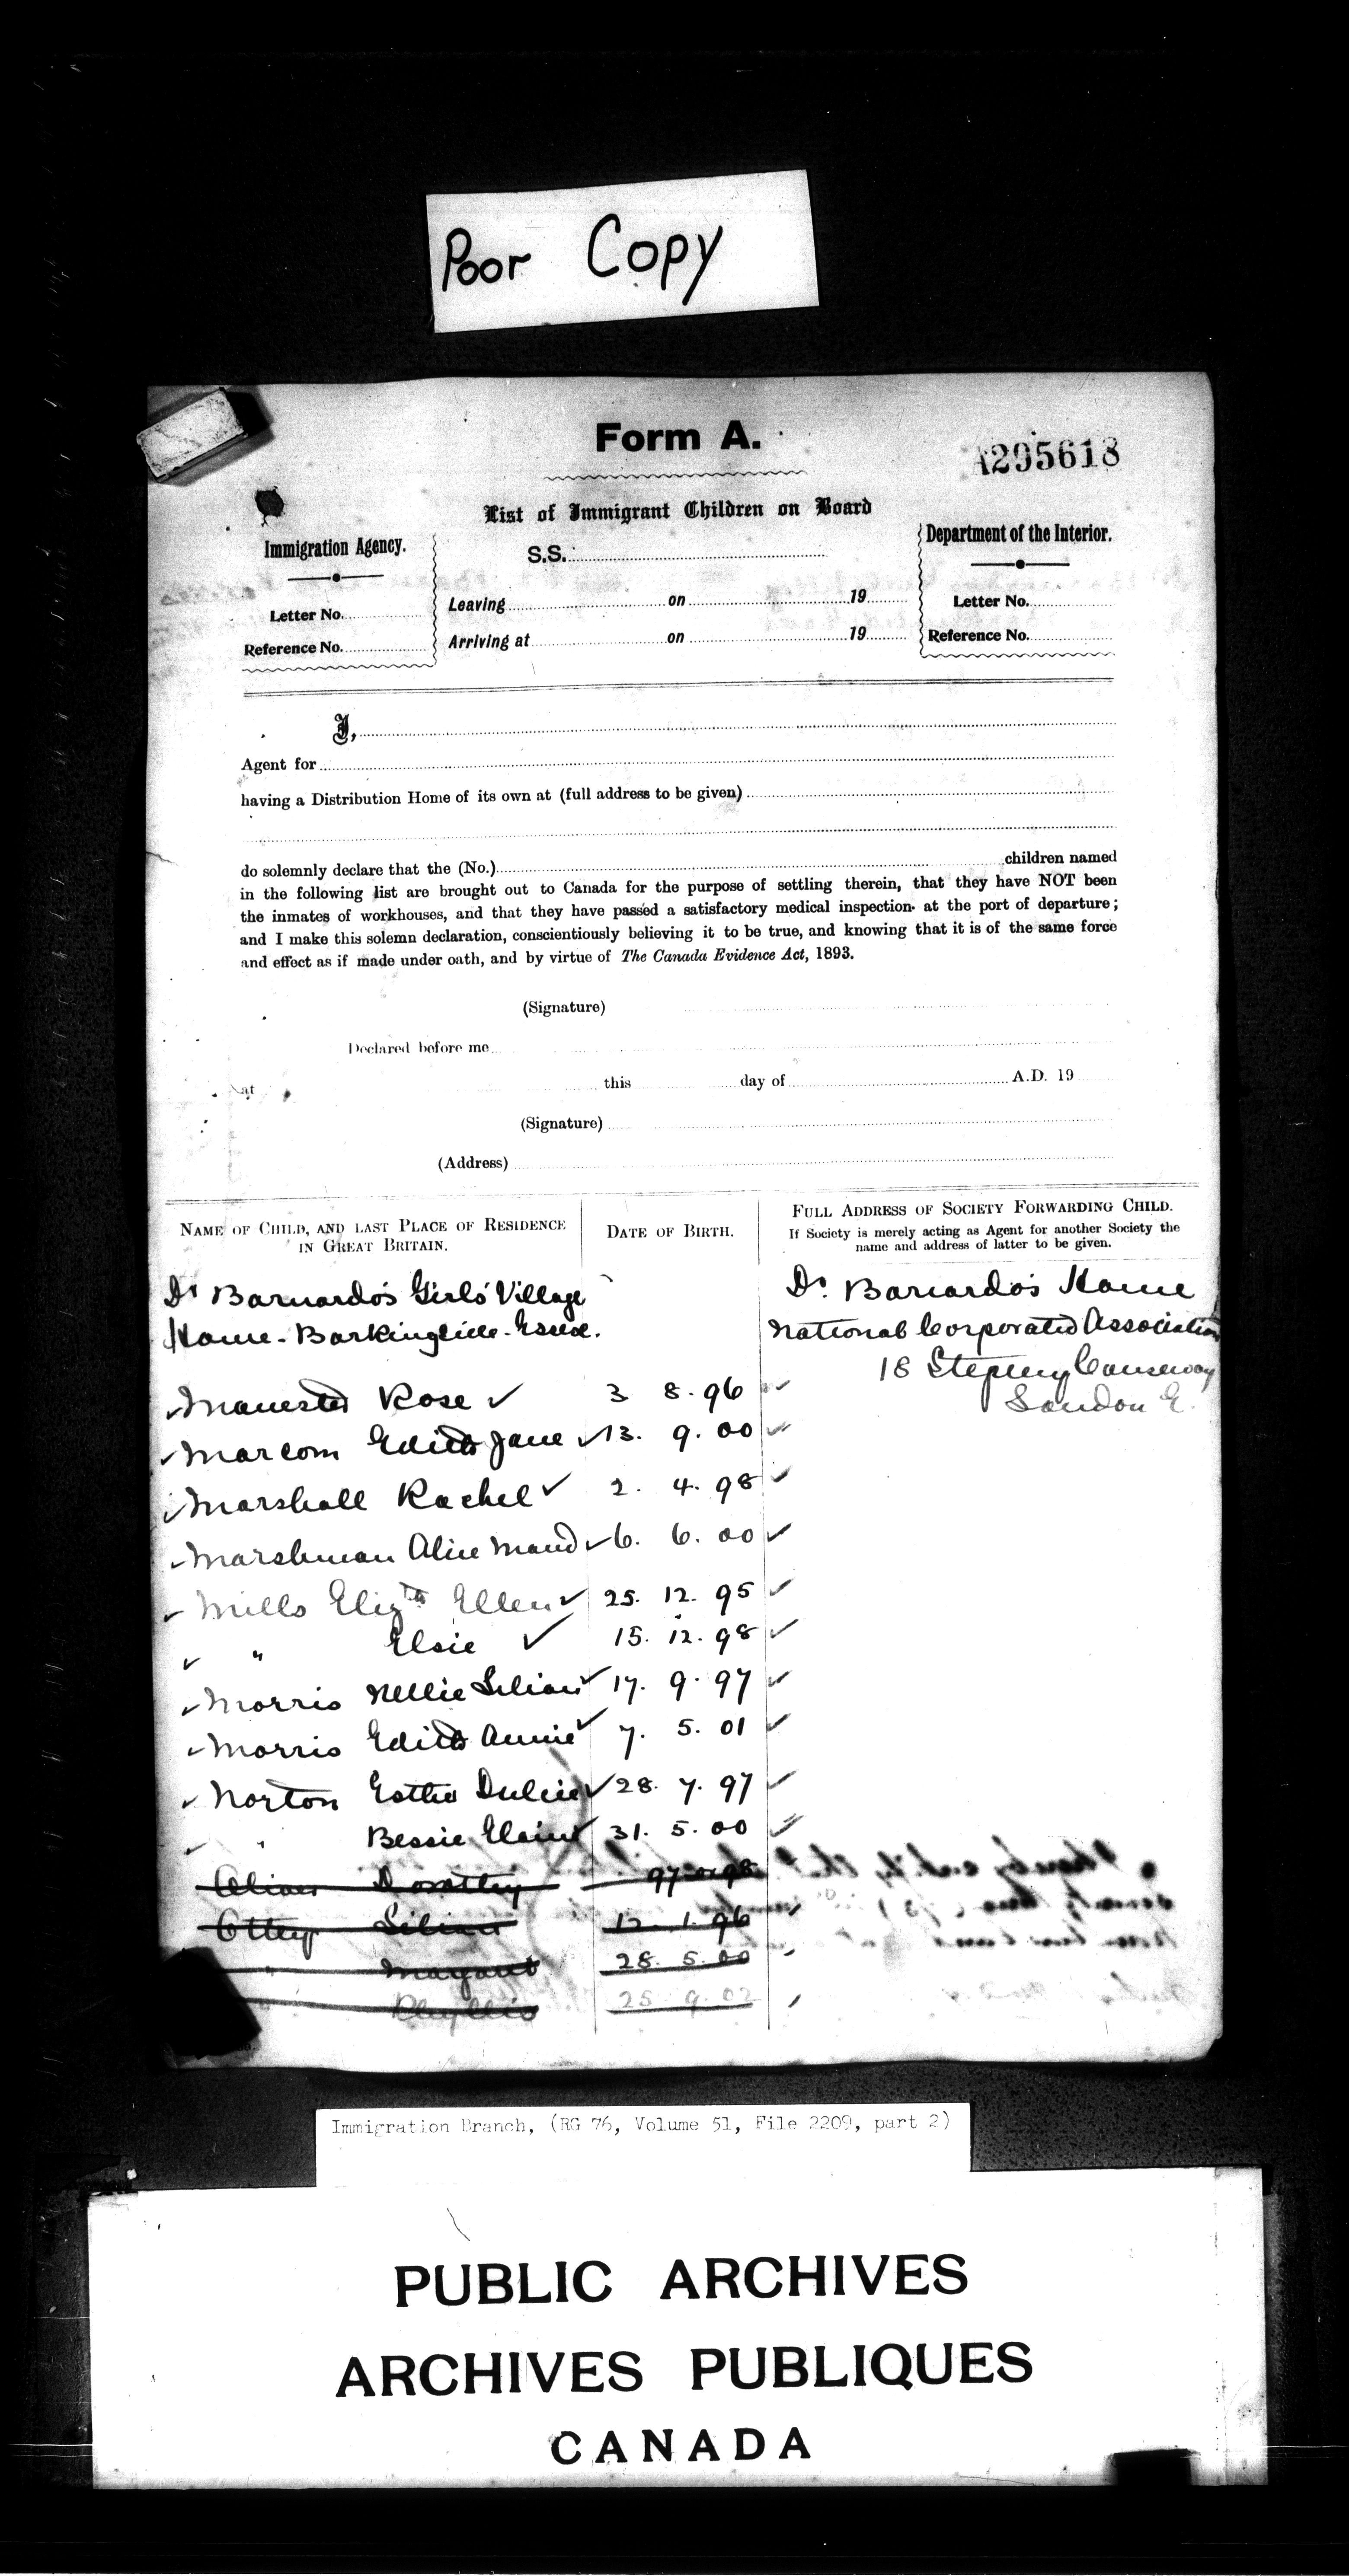 Poor Copy
Form A.
A295618
List of Immigrant Children on Board
Immigration Agency.
S.S.
Department of the Interior.
Letter No.
Leaving on 19
Letter No.
Reference No.
Arriving at on 19
Reference No.
I,
Agent for
having a Distribution Home of its own at (full address to be given)
do solemnly declare that the (No.) children named
in the following list are brought out to Canada for the purpose of settling therein, that they have NOT been
the inmates of workhouses, and that they have passed a satisfactory medical inspection at the port of departure;
and I make this solemn declaration, conscientiously believing it to be true, and knowing that it is of the same force
and effect as if made under oath, and by virtue of The Canada Evidence Act, 1893.
(Signature)
Declared before me
at this day of A.D. 19
(Signature)
(Address)
NAME OF CHILD, AND LAST PLACE OF RESIDENCE
IN GREAT BRITAIN.
DATE OF BIRTH.
FULL ADDRESS OF SOCIETY FORWARDING CHILD.
If Society is merely acting as Agent for another Society the
name and address of latter to be given.
Dr Barnardo's Girls' Village
Home - Barkingside - Essex.
Dr. Barnardo's Home
National Corporated Association
18 Stepney Causeway
London E.
Rose ✓ 3 8. 96 ✓
✓ Marcom Edith Jane ✓ 13. 9. 00 ✓
✓ Marshall Rachel ✓ 2. 4. 98 ✓
✓ Marshman Alice Maud ✓ 6. 6. 00 ✓
✓ Mills Elizth Ellen ✓ 25. 12. 95 ✓
✓ " Elsie ✓ 15. 12. 98 ✓
✓ Morris Nellie Lilian ✓ 17. 9. 97 ✓
✓ Morris Edith Annie ✓ 7. 5. 01 ✓
✓ Norton Esther Dulcie ✓ 28. 7. 97 ✓
✓ " Bessie ✓ 31. 5. 00 ✓
Oliver Dorothy 97 or 98
Ottey Lilian 12. 1. 96 ✓
" Margaret 28. 5. 00
Phyllis 25 9. 02
Immigration Branch, (RG 76, Volume 51, File 2209, part 2)
PUBLIC ARCHIVES
ARCHIVES PUBLIQUES
CANADA